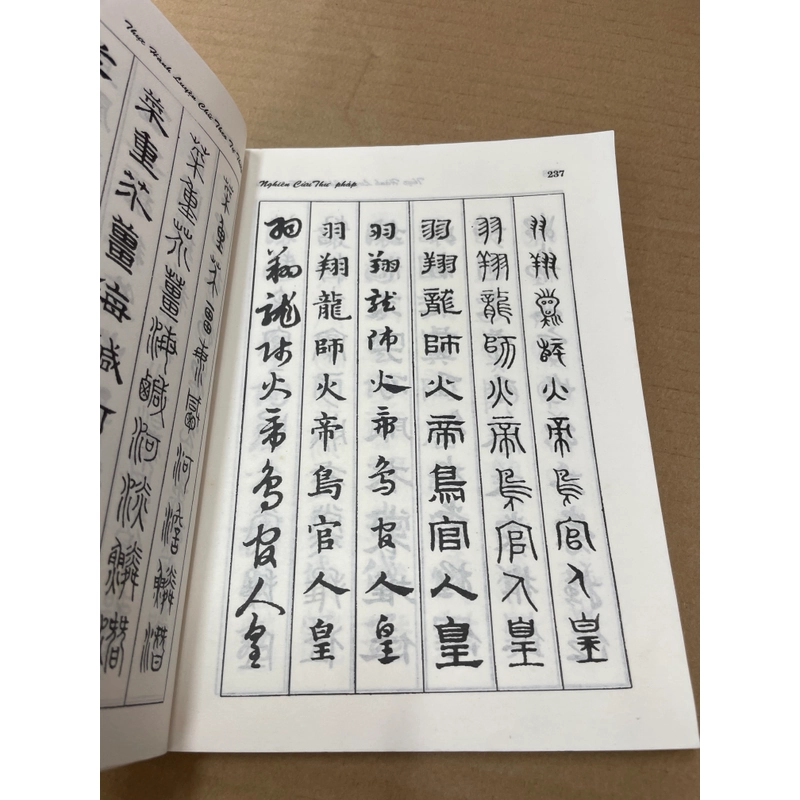 Thực Hành Luyện Chữ Theo Tự
菜重芥薑海鹹河
菜重芥薑海鹹河淡鱗潛
菜重芥薑海鹹河澹鱗潛
Nghiên Cứu Thư pháp
237
羽翔龍師火帝鳥官人皇
羽翔龍師火帝鳥官人皇
羽翔龍師火帝鳥官人皇
羽翔龍師火帝鳥官人皇
羽翔龍師火帝鳥官人皇
羽翔龍師火帝鳥官人皇